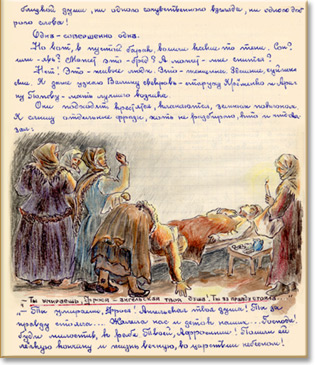 близкой души, ни одного сочувственного взгляда, ни одного доб-
рого слова!
Одна - совершенно одна.
Но вот, в пустой барак вошли какие-то тени. Сон?
или - явь? Может это - бред? А может - мне снится?
Нет! Это - живые люди. Это - женщины. Здешние, судижи-
вые. Я даже узнаю Валину свекровь - старуху
Попову - мать лучшего возчика.
Они подходят, крестятся, кланяются, земным поклоном.
Я слышу отдельные фразы, хоть не разбираю, кто и что ска-
зал:
- Ты умираешь, Фрося - ангельская твоя душа! Ты за правду стояла...
- Ты умираешь, Фрося! Ангельская твоя душа! Ты за
правду стояла... Жалела нас и детей наших... Господи!
Будь милостив, к рабе Твоей, Афросинье! Пошли ей
лёгкую кончину и жизнь вечную, во царствии небесном!